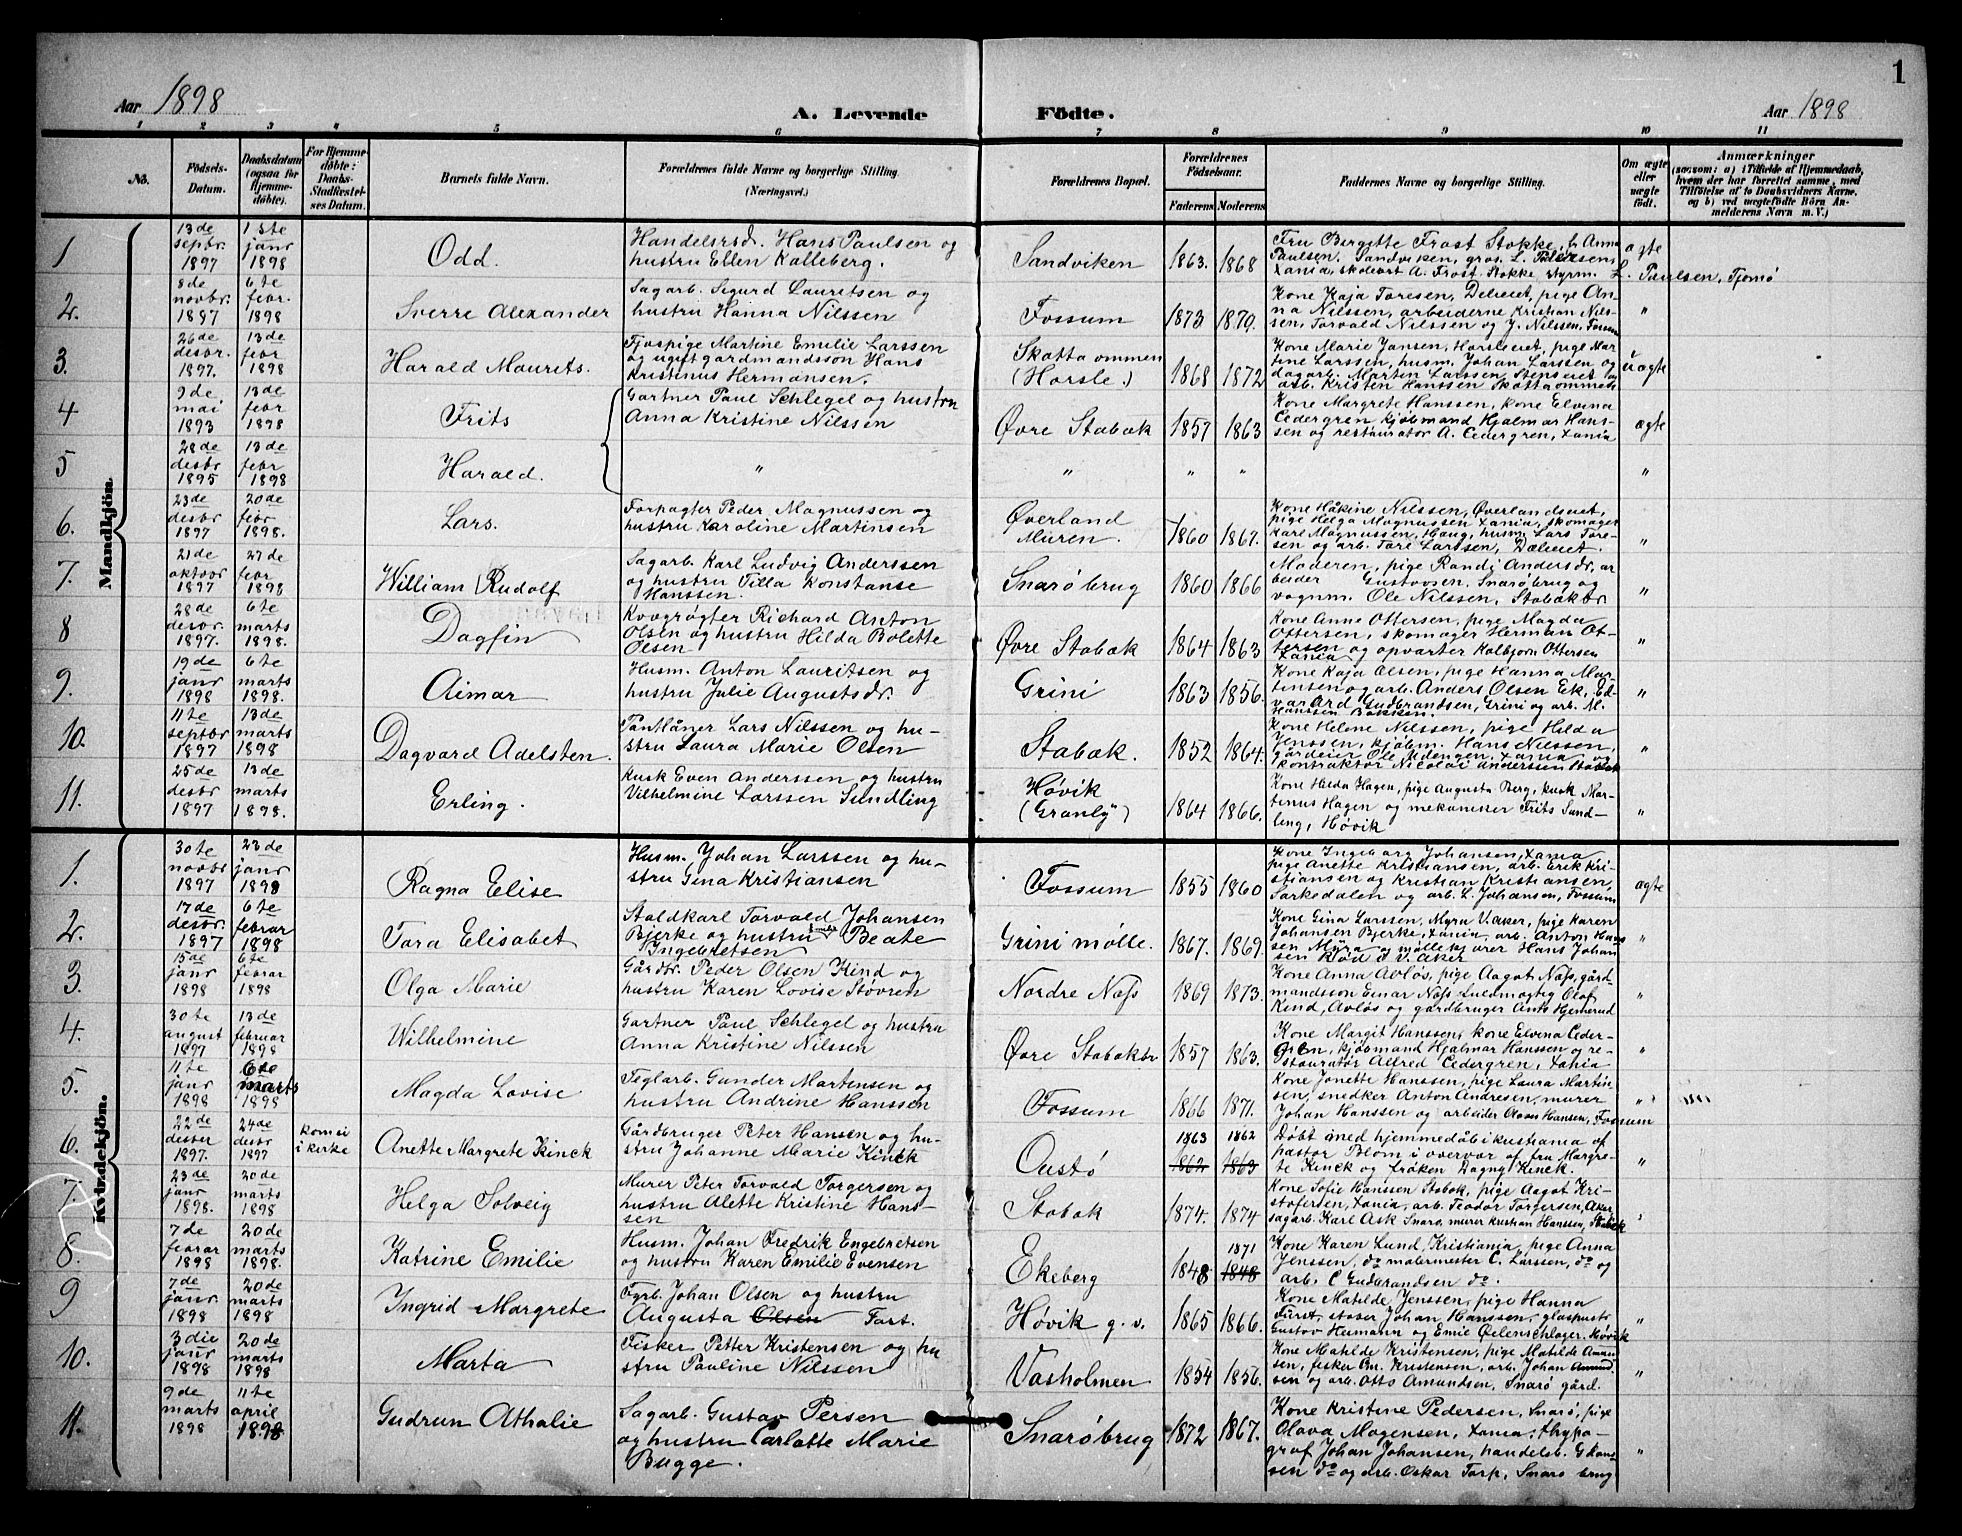 1
Aar 1898 A. Levende Födte. Aar 1898
1 2 3 4 5 6 7 8 9 10 11
No. Födsels-Datum. Daabsdatum (ogsaa for Hjemmedöbte). For Hjemmedöbte: Daabs-Stadfestelses Datum. Barnets fulde Navn. Forældrenes fulde Navne og borgerlige Stilling. (Næringsvei.) Forældrenes Bopæl. Forældrenes Födselsaar. Faderens Moderens Faddernes Navne og borgerlige Stilling. Om ægte eller uægte födt. Anmærkninger (saasom: a) i Tilfælde af Hjemmedaab, hvem der har forrettet samme, med Tilföielse af to Daabsvidners Navne, og b) ved uægtefödte Börn Anmelderens Navn m. V.)
Mandkjön.
1 13de septbr. 1897 1ste janr 1898 Odd. Handelsrsd. Hans Paulsen og hustru Ellen Kalleberg. Sandviken 1863. 1868 Fru Birgitte Frost Stokke, fr Anna Paulsen, Sandviken, gros. L. Paulsen, Xania, skolebst A. Frost Stokke styrm. L. Paulsen, Tjømø ægte
2. 8de novbr. 1897 6te febr. 1898 Sverre Alexander Sagarb. Sigurd Lauritsen og hustru Hanna Nilssen Fossum 1873 1870. Kone Kaja Toresen, Dælveiet, pige Anna Nilssen, arbeiderne Kristian Nilssen, Torvald Nilssen og J. Nilssen, Fossum "
3. 26de desbr. 1897. 13de febr 1898 Harald Maurits. Fjøspige Martine Emilie Larssen og ugift gårdmandssøn Hans Kristinus Hermansen. Skatta ommen (Horsle.) 1868 1872 Kone Marie Jansen, Horsleiet, pige Martine Larssen, husm. Johan Larssen og dagarb. Marten Larssen Stenseiet og arb. Kristen Hanssen Skattaommen uægte
4 9de. mai 1893 13de febr 1898 Frits Gartner Paul Schlegel og hustru Anna Kristine Nilssen Øvre Stabæk 1857 1863 Kone Margrete Hanssen, kone Elvina Cedergren kjøbmand Hjalmar Hanssen og restauratør A. Cedergren, Xania ægte
5 28de desbr 1895 13de febr 1898 Harald. " " " " "
6. 23de desbr 1897 20de febr 1898. Lars. Forpagter Peder Magnussen og hustru Karoline Martinsen Øverland Muren. 1860 1867. Kone Håkine Nilssen, Øverlandseiet, pige Helga Magnussen Xania, skomager Karl Magnussen, Haug, husm. Lars Toresen og arb. Tore Larssen, Dælveiet. "
7. 21de oktobr 1897 27de febr 1898 William Rudolf Sagarb. Karl Ludvig Anderssen og hustru Tilla Konstanse Hanssen. Snarøbrug 1860 1866 Moderen, pige Randi Andersdr, arbeider Gustavsen, Snarøbrug og vognm. Ole Nilssen, Stabækbr. "
8 28de desbr. 1897. 6te marts 1898. Dagfin Kvægrøgter Richard Anton Olsen og hustru Hilda Bolette Olsen Øvre Stabæk 1864 1863 Kone Anne Ottersen, pige Magda Ottersen, skomager Herman Ottersen og opvarter Kolbjørn Ottersen Xania "
9. 19de janr 1898 6te marts 1898. Aimar Husm. Anton Lauritsen og hustru Julie Augustsdr. Grini 1863 1856. Kone Kaja Olsen, pige Hanna Martinsen og arb. Anders Olsen Ek, Edvard Gudbrandsen, Grini og arb. M. Hanssen Bakken. "
10. 11te septbr 1897 13de marts 1898 Dagvard Adelsten. Pantlåner Lars Nilssen og hustru Laura Marie Olsen Stabæk. 1852 1864. Kone Helene Nilssen, pige Hilda Jenssen, kjøbm. Hans Nilssen, gårdeier Ole Udengen, Xania og kontraktør Nicolai Anderssen Stabæk "
11. 25de desbr 1897 13de marts 1898. Erling. Kusk Even Anderssen og hustru Vilhelmine Larssen Sundling Høvik (Granly) 1864 1866. Kone Hilda Hagen, pige Augusta Berg, kusk Martinus Hagen og mekaniker Frits Sundling, Høvik "
Kvindekjön.
1. 30te novbr 1897 23de janr 1898 Ragna Elise Husm. Johan Larssen og hustru Gina Kristiansen Fossum 1855 1860 Kone Ingeborg Johansen, Xania pige Anette Kristiansen, arb. Erik Kristiansen og Kristian Kristiansen, Sørkedalen og arb. L. Johansen, Fossum ægte
2. 17de desbr. 1897 6te februar 1898 Tora Elisabet Staldkarl Torvald Johansen Bjerke og hustru Beate Ingebretsen Grini mølle. 1867. 1869. Kone Gina Larssen, Myra V. Aker, pige Karen Johansen Bjerke, Xania, arb. Anton Hanssen Myra og møllekjører Hans Johansen V. Aker "
3. 15de janr 1898 6te februar 1898 Olga Marie Gårdbr. Peder Olsen Kind og hustru Karen Lovise Støvren Nordre Næss 1869 1873. Kone Anna Avløs, pige Aagot Næss, gårdmandssøn Einar Næss fuldmægtig Olaf Kind, Avløs og gårdbruger Ants Hjemerud "
4. 30te august 1897 13de februar 1898 Wilhelmine Gartner Paul Schlegel og hustru Anna Kristine Nilssen Øvre Stabækbr 1857 1863. Kone Margit Hanssen, kone Elvina Cedergren, kjøbmand Hjalmar Hanssen og restauratør Alfred Cedergren, Xania "
5. 11te janr 1898 6te marts 1898 Magda Lovise Teglarb. Gunder Martensen og hustru Andrine Hanssen Fossum 1866 1871. Kone Jonette Hanssen, pige Laura Martinsen, snedker Anton Andresen, murer Johan Hanssen og arbeider Olaus Hansen, Fossum "
6. 22de desber 1897. 24de desbr 1897 kom ei i kirke Anette Margrete Kinck Gårdbruger Peter Hansen og hustru Johanne Marie Kinck Oustø 1863 1862 1862 1863 Døbt med hjemmedåb i Kristiania af pastor Blom i overvær af fru Margrete Kinck og frøken Dagny Kinck. "
7. 23de janr 1898. 20de marts 1898 Helga Solveig Murer Peter Torvald Torgersen og hustru Alette Kristine Hanssen Stabæk 1874. 1874 Kone Sofie Hanssen Stabæk, pige Aagot Kristofersen, Xania, arb. Teodor Torgersen, Aker, sagarb. Karl Ask Snarø, murer Kristian Hanssen, Stabæk "
8. 7de februar 1898 20de marts 1898. Katrine Emilie Husm. Johan Fredrik Engebretsen og hustru Karen Emilie Evensen Ekeberg 1848 1871 1848 Kone Karen Lund, Kristiania, pige Anna Jenssen, do malermester C. Larssen, do og arb. C Gudbrandsen do. "
9 7de janr. 1898 20de marts 1898 Ingrid Margrete Fgrb. Johan Olsen og hustru Augusta Olsen Fart. Høvik g. v. 1865 1866. Kone Matilde Jenssen, pige Hanna Fürst, støber Johan Hanssen, glaspuster Gustav Heimann og Emil Øelenschlager, Høvik "
10. 3die janr 1898 20de marts 1898 Marta Fisker Petter Kristensen og hustru Pauline Nilssen Vasholmen 1854 1856. Kone Matilde Kristensen, pige Matilde Amundsen, fisker Chr. Kristensen, arb. Johan Amundsen og arb. Otto Amundsen, Snarø gård. "
11. 9de marts 1898 11te april 1898 Gudrun Athalie Sagarb. Gustav Persen og hustru Carlotte Marie Bugge. Snarøbrug 1872 1867. Kone Kristine Pedersen, Snarø, pige Olava Mogensen, Xania, thypograf Johan Johansen, handelsb. G Hanssen do og arb. Oskar Torp, Snarø brug "